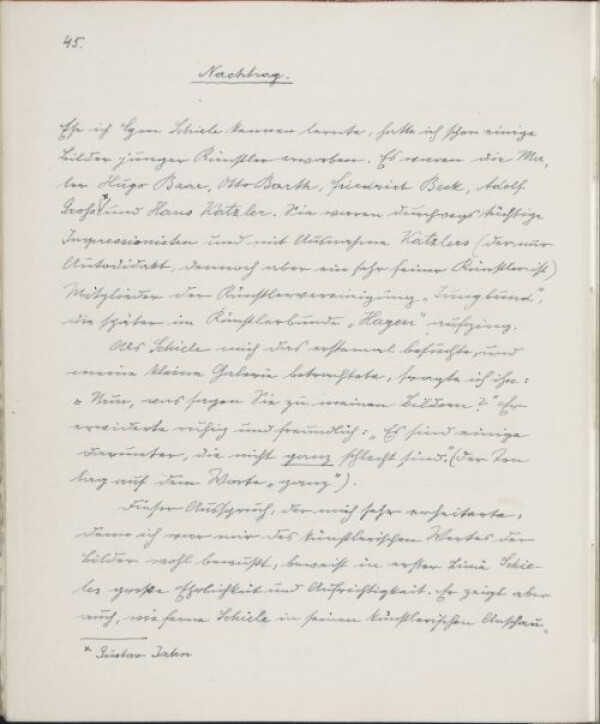 45.
Nachtrag.
Ehe ich Egon Schiele kennen lernte, hatte ich schon einige
Bilder junger Künstler erworben. Es waren die Ma-
ler Hugo Baar, Otto Barth, Friedrich Beck, Adolf
Groß*) und Hans Katzler. Sie waren durchwegs tüchtige
Impressionisten und mit Ausnahme Katzlers (der nur
Autodidakt, dennoch aber ein sehr feiner Künstler ist)
Mitglieder der Künstlervereinigung „Jungbund“,
die später im Künstlerbunde „Hagen“ aufging.
Als Schiele mich das erstemal besuchte, und
meine kleine Galerie betrachtete, fragte ich ihn:
„Nun, was sagen Sie zu meinen Bildern?“ Er
erwiderte ruhig und freundlich: „Es sind einige
darunter, die nicht ganz schlecht sind.“ (Der Ton
lag auf dem Worte „ganz“).
Dieser Ausspruch, der mich sehr erheiterte,
denn ich war mir des künstlerischen Wertes der
Bilder wohl bewußt, beweist in erster Linie Schie-
les große Ehrlichkeit und Aufrichtigkeit. Er zeigt aber
auch, wie ferne Schiele in seinen künstlerischen Anschau-
* Gustav